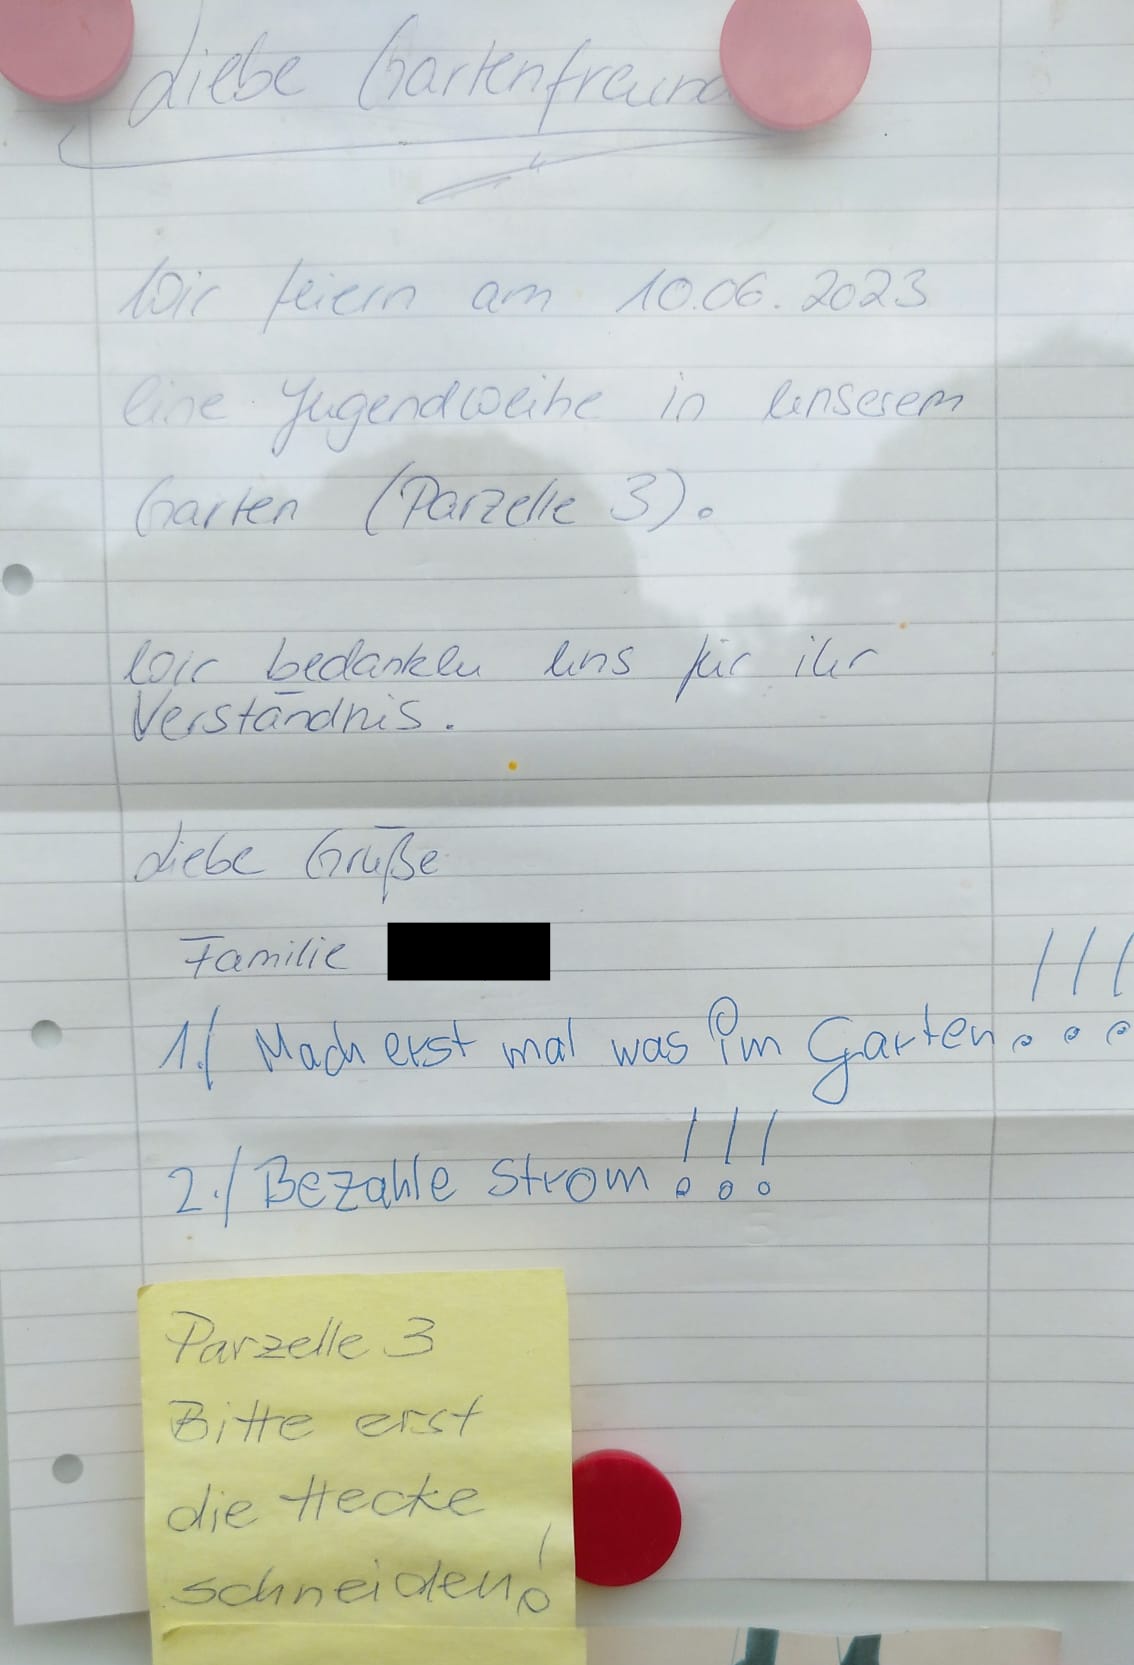 Liebe Gartenfreund
Wir feiern am 10.06.2023
eine Jugendweihe in unserem
Garten (Parzelle 3).
Wir bedanken uns für ihr
Verständnis.
Liebe Grüße
Familie
1./ Mach erst mal was im Garten!!!
2./ Bezahle Strom!!!
Parzelle 3
Bitte erst
die Hecke
schneiden!